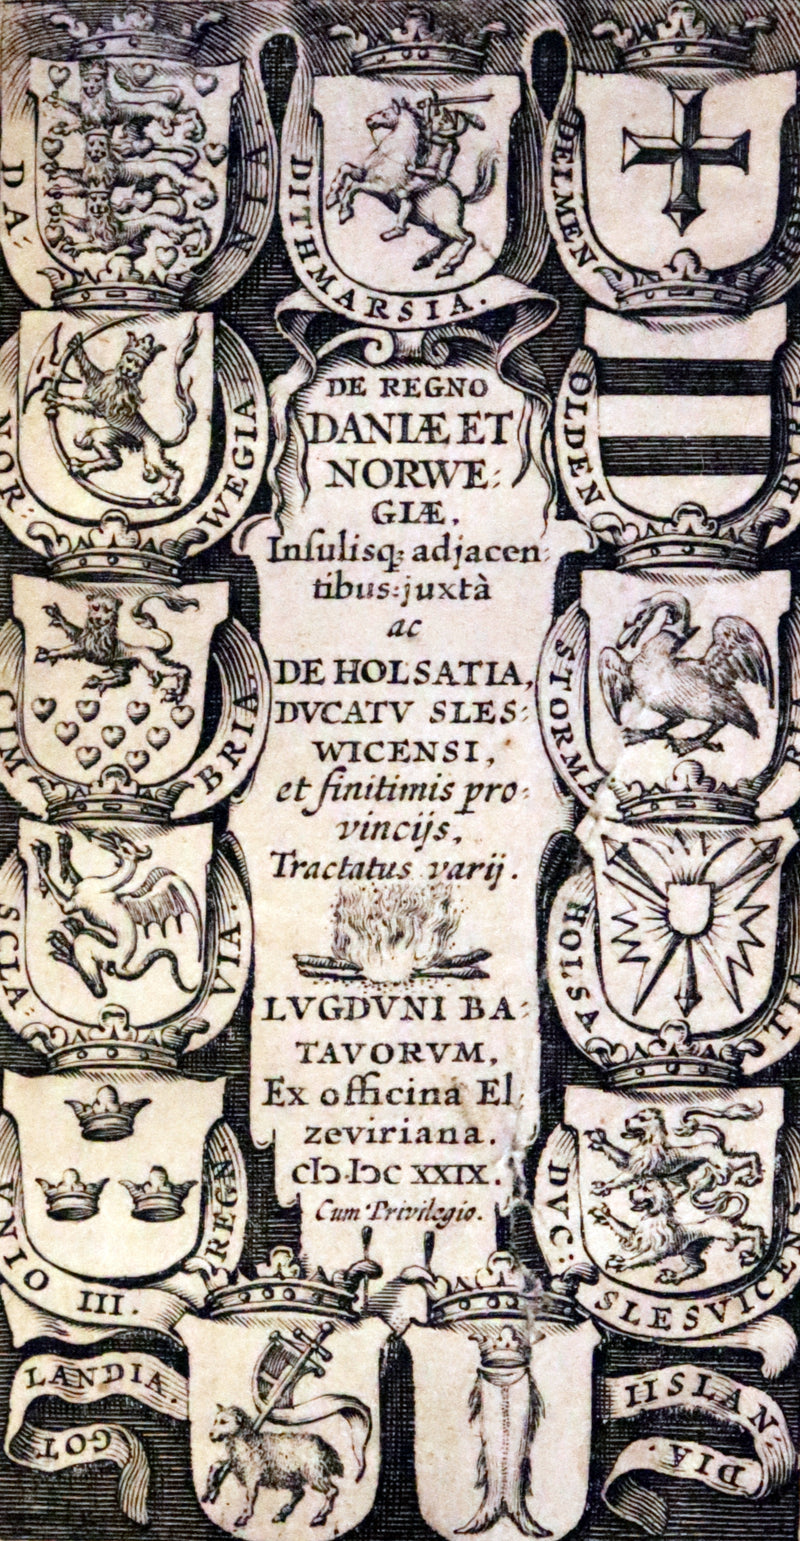 DA:
NIA.
DITHMARSIA.
DELMEN
NOR:
WEGIA.
OLDEN
BVR:
CIM
BRIA.
STORMA
RIA.
SCLA:
VIA.
HOLSA
TIA
VNIO III.
REGN
DVC:
SLESVICEN
GOT
LANDIA.
IISLAN
DIA.
DE REGNO
DANIÆ ET
NORWE:
GIÆ,
Insulisq; adjacen:
tibus: juxtà
ac
DE HOLSATIA,
DVCATV SLES:
WICENSI,
et finitimis pro:
vincijs,
Tractatus varij.
LVGDVNI BA:
TAVORVM,
Ex officina El:
zeviriana.
cIɔ.Iɔc XXIX.
Cum Privilegio.